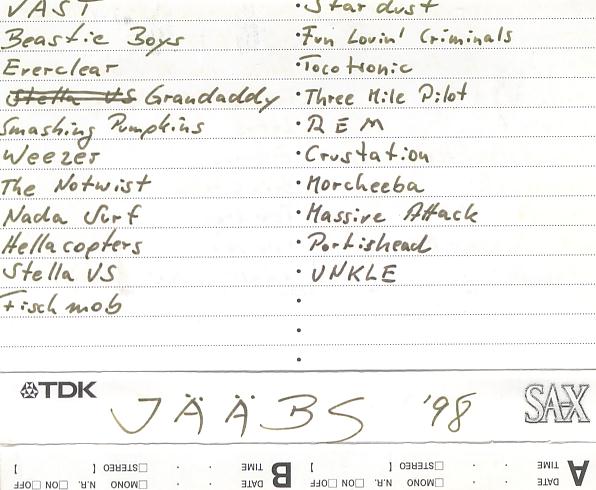 VAST
Beastie Boys
Everclear
Stella VS Grandaddy
Smashing Pumpkins
Weezer
The Notwist
Nada Surf
Hellacopters
Stella VS
Fischmob
Stardust
Fun Lovin' Criminals
Tocotronic
Three Mile Pilot
REM
Crustation
Morcheeba
Massive Attack
Portishead
UNKLE
TDK JÄÄBS '98 SA-X
A DATE TIME
MONO N.R. ON OFF
STEREO
B DATE TIME
MONO N.R. ON OFF
STEREO